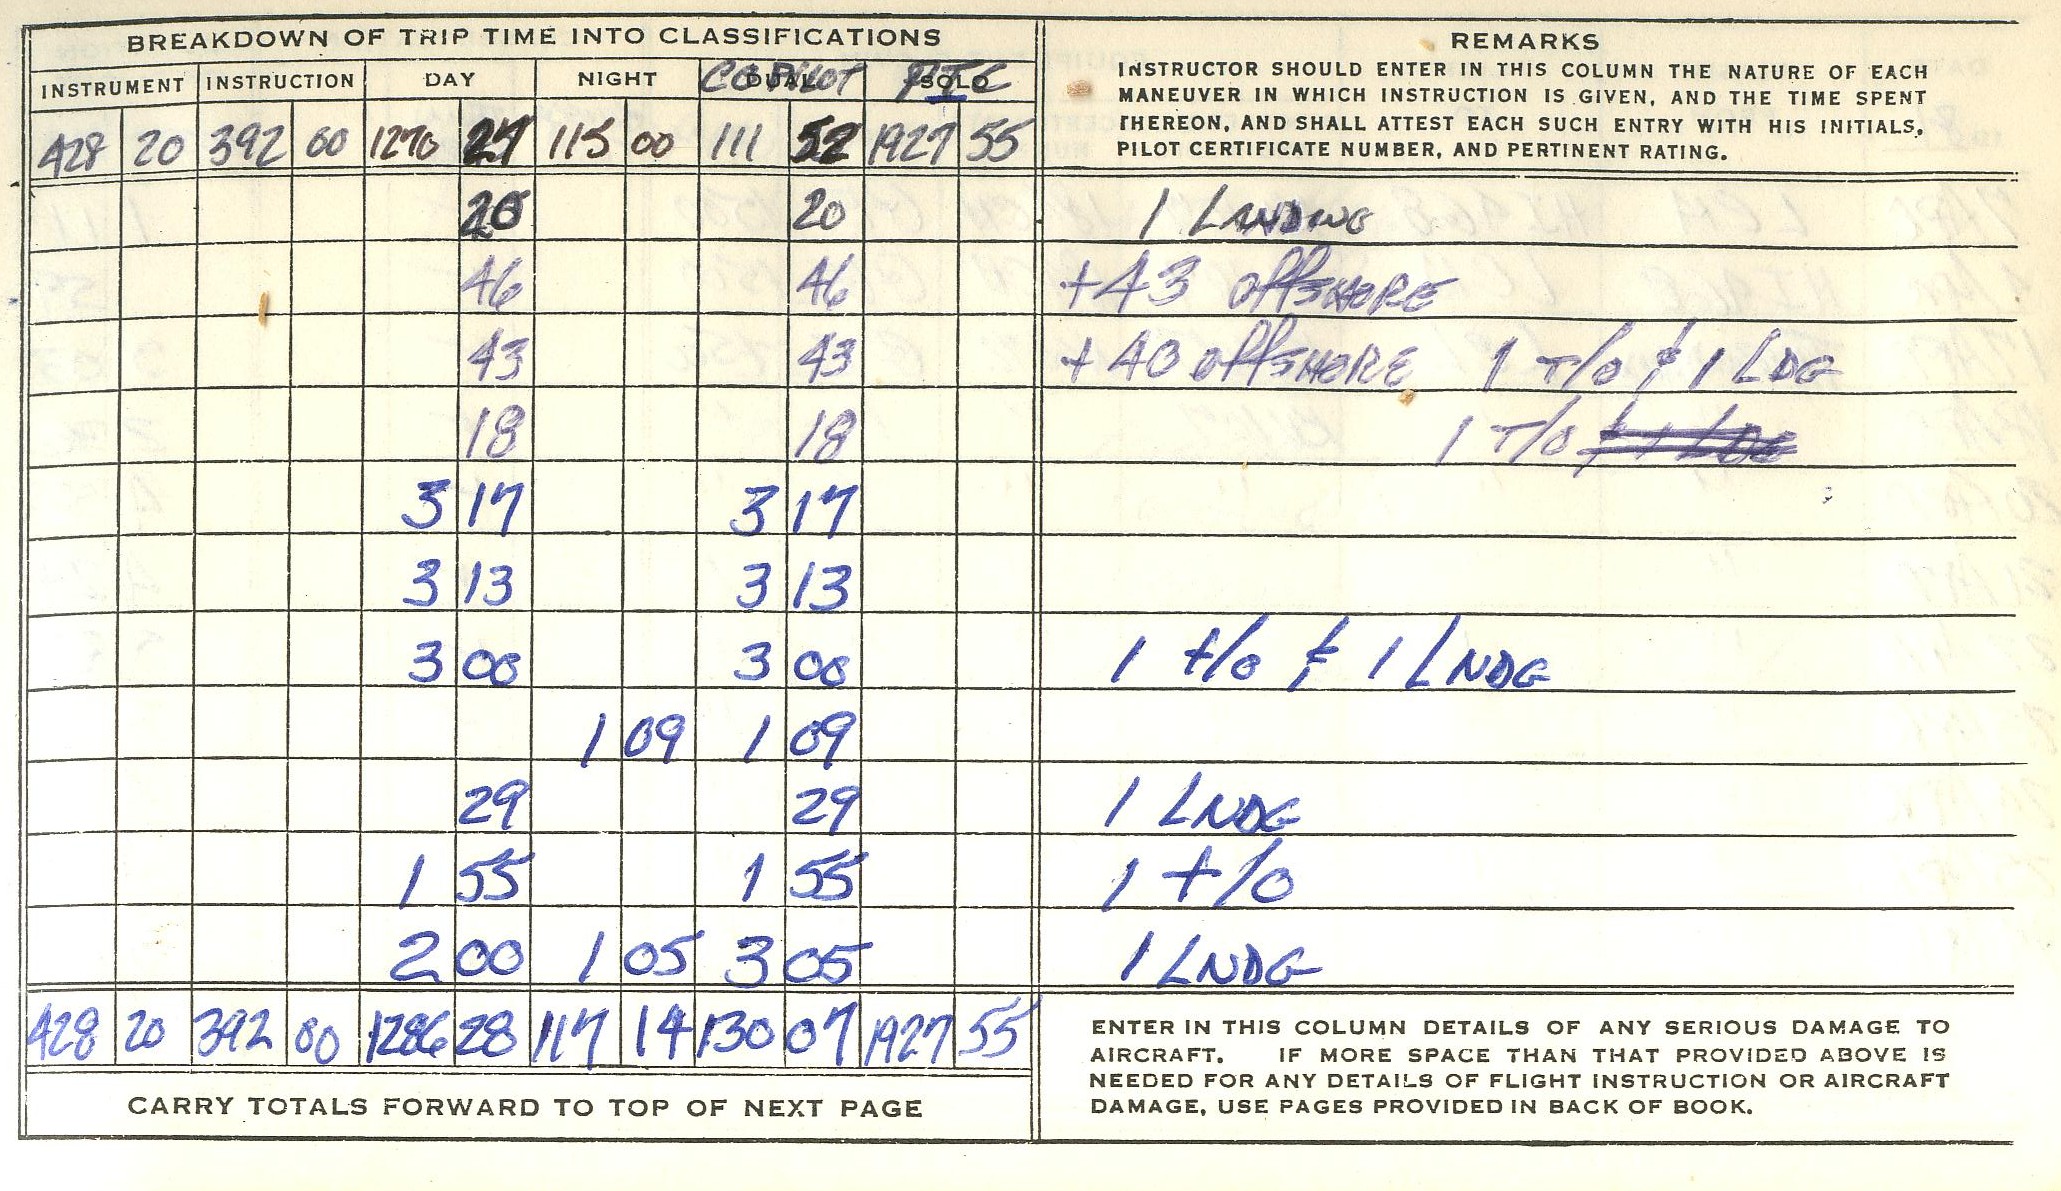 BREAKDOWN OF TRIP TIME INTO CLASSIFICATIONS REMARKS
INSTRUMENT INSTRUCTION DAY NIGHT COPILOT DUAL PIC SOLO
INSTRUCTOR SHOULD ENTER IN THIS COLUMN THE NATURE OF EACH
MANEUVER IN WHICH INSTRUCTION IS GIVEN, AND THE TIME SPENT
THEREON, AND SHALL ATTEST EACH SUCH ENTRY WITH HIS INITIALS,
PILOT CERTIFICATE NUMBER, AND PERTINENT RATING.
428 20 392 00 1270 27 115 00 111 52 1927 55
20 20 1 LANDING
46 46 +43 offSHORE
43 43 +40 offSHORE 1 T/O & 1 LDG
18 18 1 T/O & 1 LDG
3 17 3 17
3 13 3 13
3 00 3 00 1 t/o & 1 LNDG
1 09 1 09
29 29 1 LNDG
1 55 1 55 1 t/o
2 00 1 05 3 05 1 LNDG
428 20 392 00 1286 28 117 14 130 07 1927 55
CARRY TOTALS FORWARD TO TOP OF NEXT PAGE
ENTER IN THIS COLUMN DETAILS OF ANY SERIOUS DAMAGE TO
AIRCRAFT. IF MORE SPACE THAN THAT PROVIDED ABOVE IS
NEEDED FOR ANY DETAILS OF FLIGHT INSTRUCTION OR AIRCRAFT
DAMAGE, USE PAGES PROVIDED IN BACK OF BOOK.